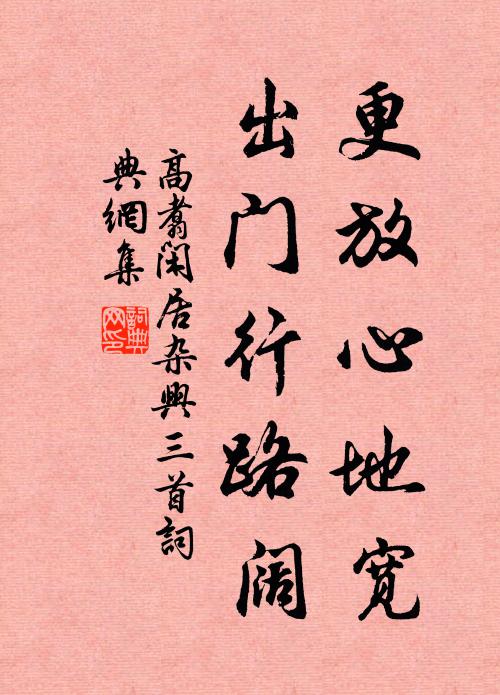 更放心地寬
出门行路阔
高翥閑居杂興三首詞
典網集
詞典
网印